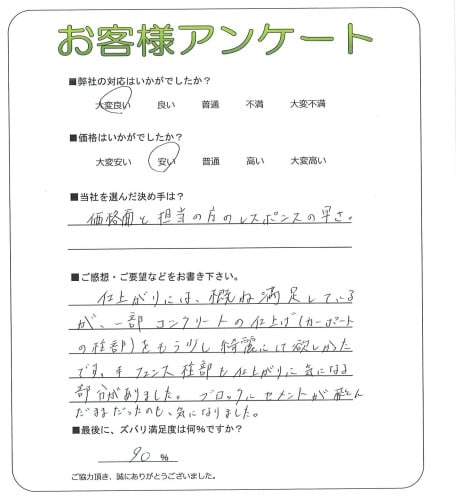 お客様アンケート
■弊社の対応はいかがでしたか？
大変良い 良い 普通 不満 大変不満
■価格はいかがでしたか？
大変安い 安い 普通 高い 大変高い
■当社を選んだ決め手は？
価格面と担当の方のレスポンスの早さ。
■ご感想・ご要望などをお書き下さい。
仕上がりには、概ね満足している
が、一部コンクリートの仕上げ(カーポート
の柱部)をもう少し綺麗にして欲しかった
です。フェンス柱部も仕上がりに気になる
部分がありました。ブロックにセメントが
だままだったのも、気になりました。
■最後に、ズバリ満足度は何％ですか？
90 ％
ご協力頂き、誠にありがとうございました。